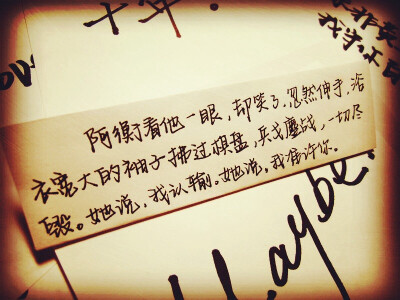 十年.
阿衡看他一眼，却笑了，忽然伸手，浴
衣宽大的袖子拂过棋盘，兵戈鏖战，一切尽
毁。她说，我认输。她说，我准许你。
Maybe.